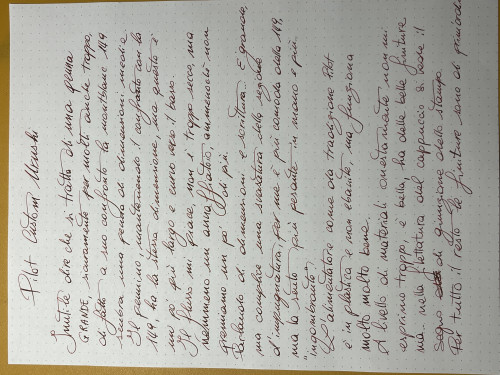 Pilot Custom Urushi
Inutile dire che si tratta di una penna
GRANDE, sicuramente per molti anche troppo,
di fatto a suo confronto la montblanc 149
sembra una penna di dimensioni medie.
Il pennino mantenendo il confronto con la
149, ha la stessa dimensione, ma questo è
un po' più largo e curvo verso il basso.
Il flusso mi piace, non è troppo secco, ma
nemmeno un annaffiatoio, aumenterà non
premiamo un po' di più.
Parlando di dimensioni e scrittura. È grande,
ma complice una svasatura della sezione
d'impugnatura, per me è più comoda della 149,
ma la sento più pesante in mano e più
"ingombrante".
L'alimentatore come da tradizione Pilot
è in plastica e non ebanite, ma funziona
molto molto bene.
A livello di materiali onestamente non mi
esprimo troppo, è bella, ha delle belle finiture
ma... nella filettatura del cappuccio si vede il
segno di giunzione dello stampo.
Per tutto il resto le finiture sono di